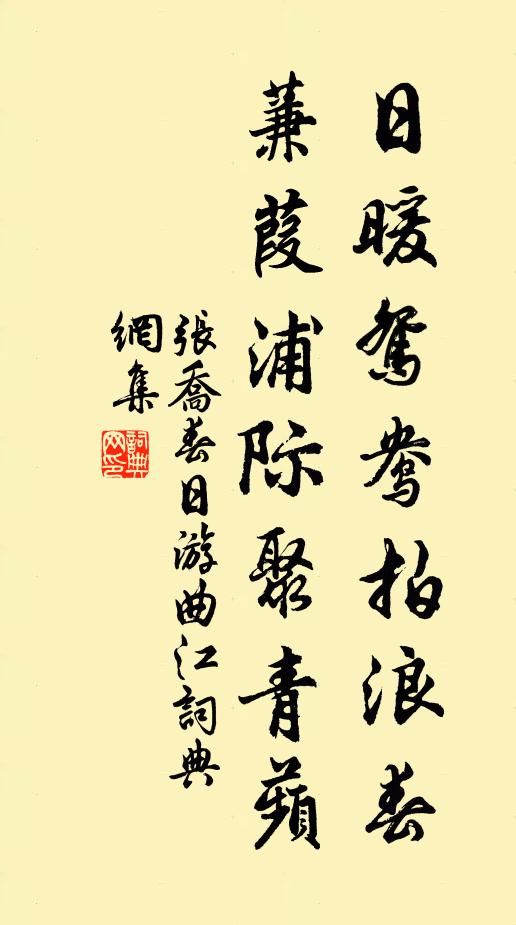 日暖鸳鸯拍浪春
蒹葭浦际聚青蘋
張喬春日游曲江詞典
網集
詞典
网印